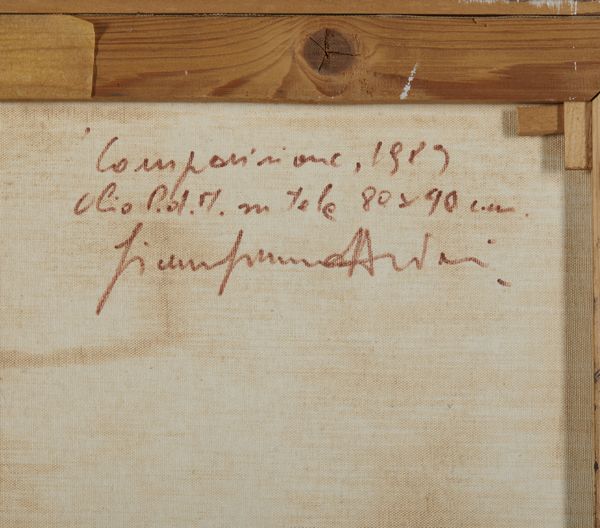 Composizione, 1989
olio P.d.M. su tela 80 x 90 cm.
Gianfranco Ardini